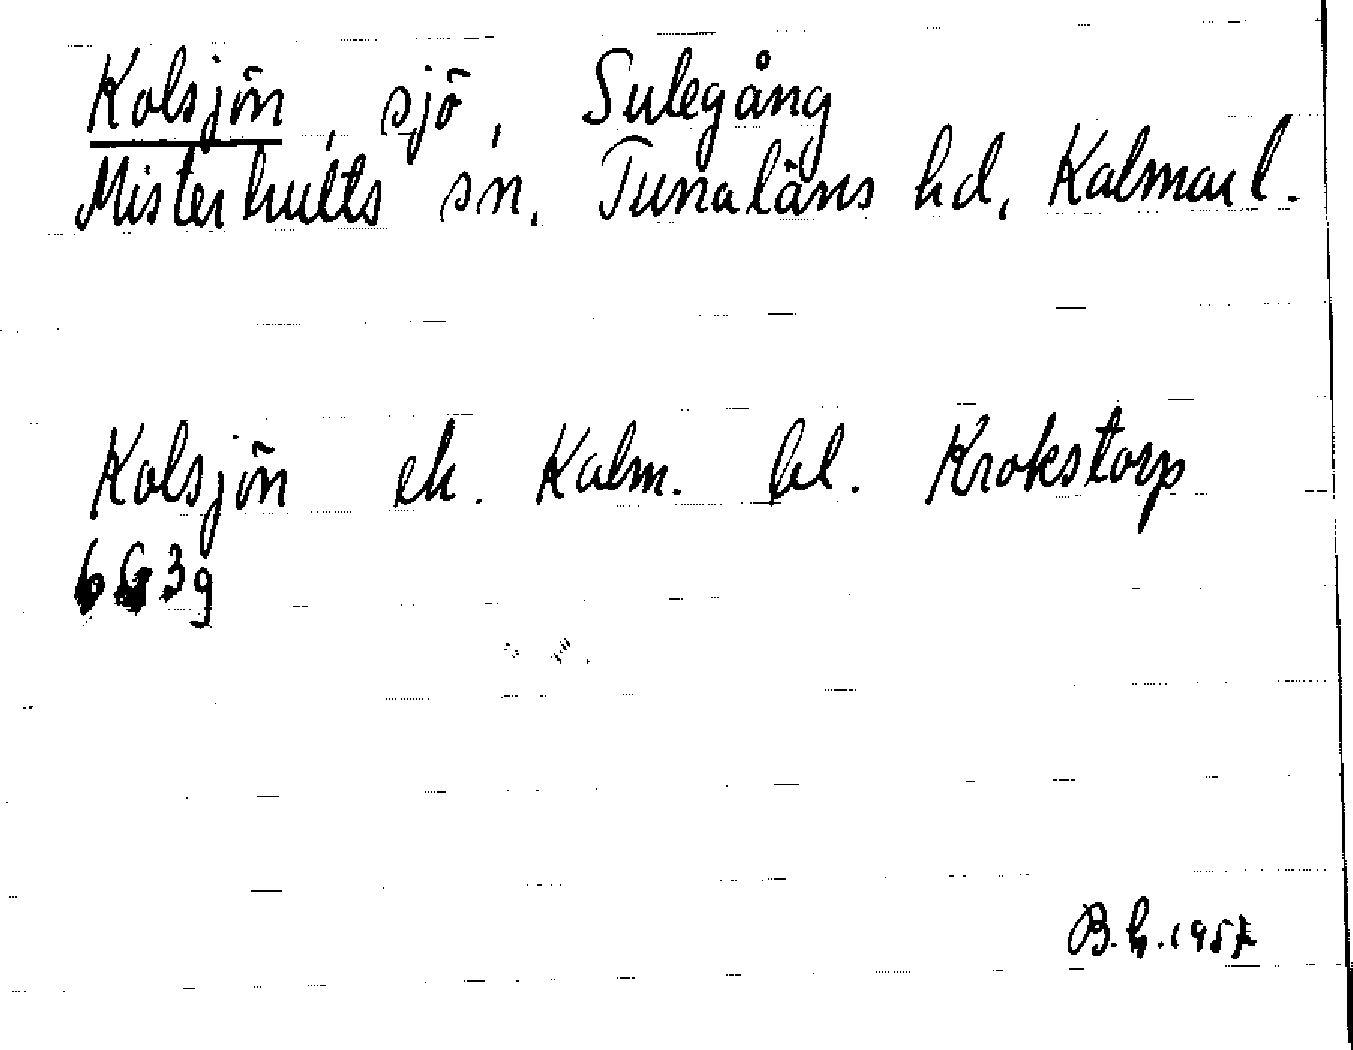 Kolsjön, sjö, Sulegång
Misterhults sn. Tunaläns hd, Kalmar l.
Kolsjön ek. Kalm. bl. Krokstorp
6G 3g
B.G. 1957